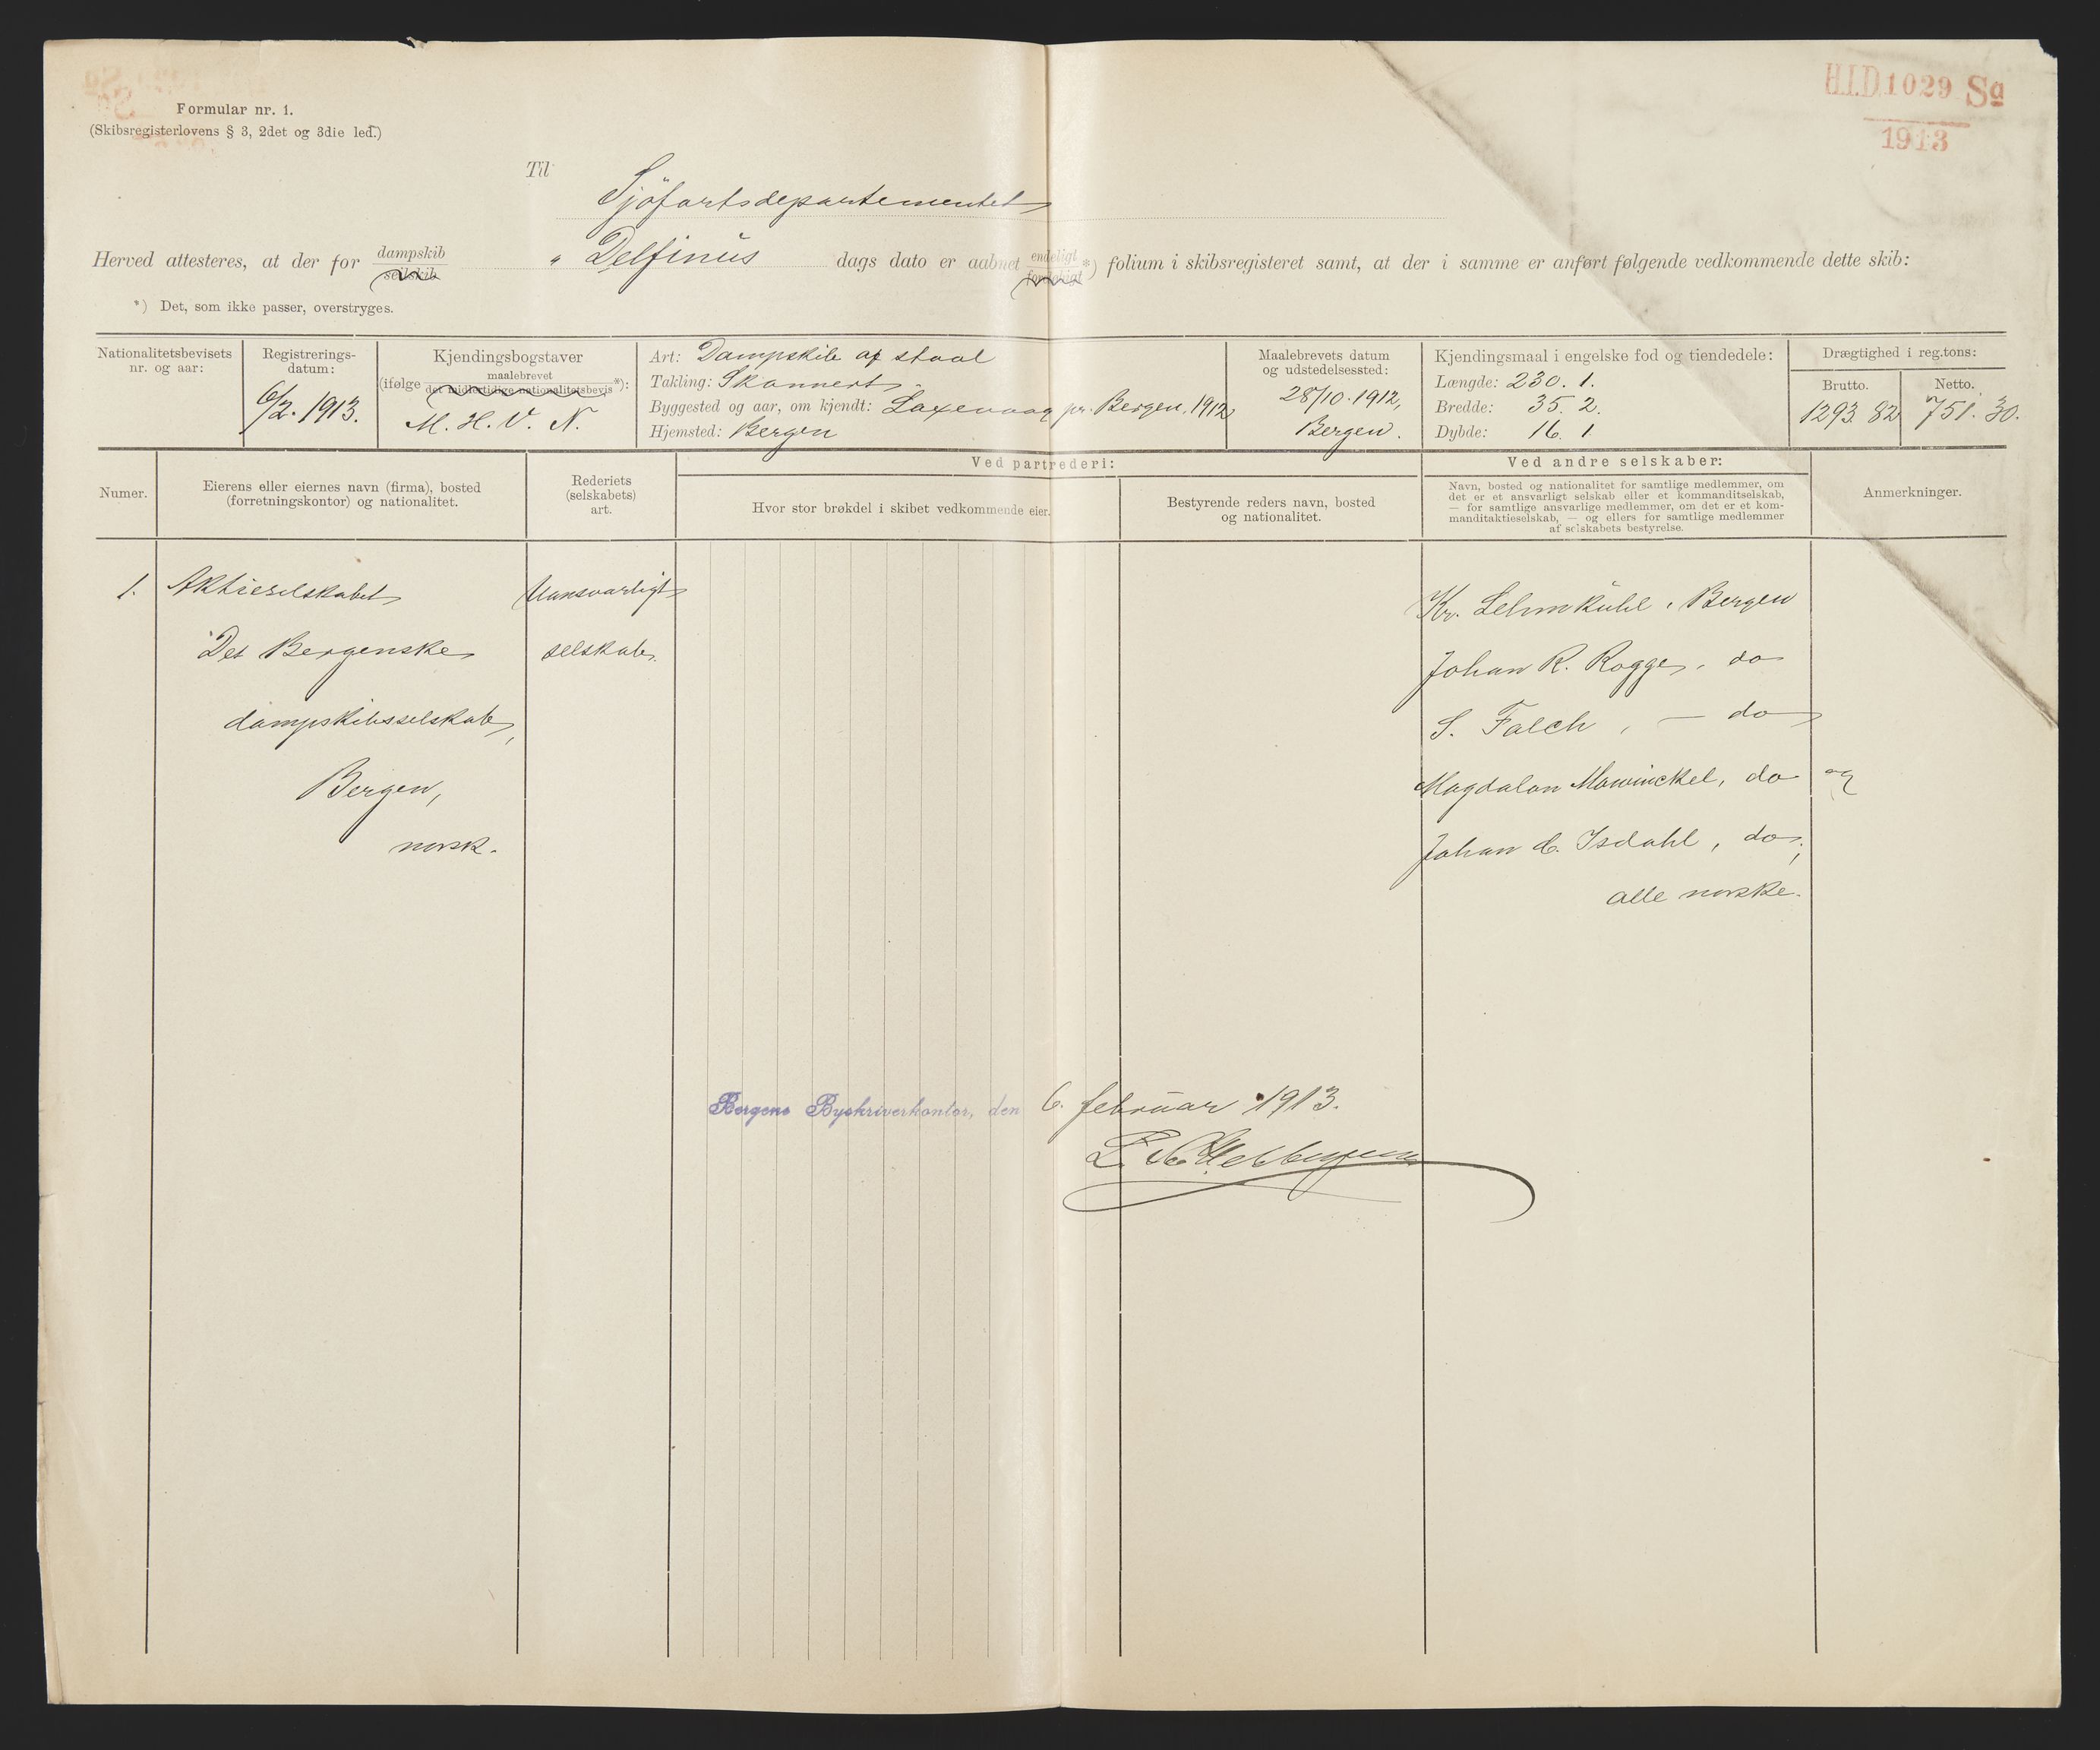 H.I.D. 1029 Sa
1913
Formular nr. 1.
(Skibsregisterlovens § 3, 2det og 3die led.)
Til
Sjöfartsdepartementet
Herved attesteres, at der for dampskib seilskib "Delfinus dags dato er aabnet endeligt foreløbigt *) folium i skibsregisteret samt, at der i samme er anført følgende vedkommende dette skib:
*) Det, som ikke passer, overstryges.
Nationalitetsbevisets nr. og aar:
Registrerings-datum:
6/2. 1913.
Kjendingsbogstaver
(ifølge maalebrevet det midlertidige nationalitetsbevis *):
M. H. V. N.
Art: Dampskib af staal
Takling: Skonnert.
Byggested og aar, om kjendt: Laxevaag pr. Bergen, 1912
Hjemsted: Bergen
Maalebrevets datum
og udstedelsessted:
28/10. 1912,
Bergen.
Kjendingsmaal i engelske fod og tiendedele:
Længde: 230. 1.
Bredde: 35. 2.
Dybde: 16. 1
Drægtighed i reg.tons:
Brutto. Netto.
1293 82 751. 30.
Numer.
Eierens eller eiernes navn (firma), bosted
(forretningskontor) og nationalitet.
Rederiets
(selskabets)
art.
Ved partrederi:
Hvor stor brøkdel i skibet vedkommende eier.
Bestyrende reders navn, bosted
og nationalitet.
Ved andre selskaber:
Navn, bosted og nationalitet for samtlige medlemmer, om
det er et ansvarligt selskab eller et kommanditselskab,
— for samtlige ansvarlige medlemmer, om det er et kom-
manditaktieselskab, — og ellers for samtlige medlemmer
af selskabets bestyrelse.
Anmerkninger.
1. Aktieselskabet
Det Bergenske
dampskibsselskab,
Bergen,
norsk.
Uansvarligt
selskab.
Kr. Lehmkühl, Bergen
Johan R. Rogge, do
S. Falch, — do
Magdalon Mowinckel, do og
Johan C. Isdahl, do;
alle norske.
Bergens Byskriverkontor, den 6. februar 1913.